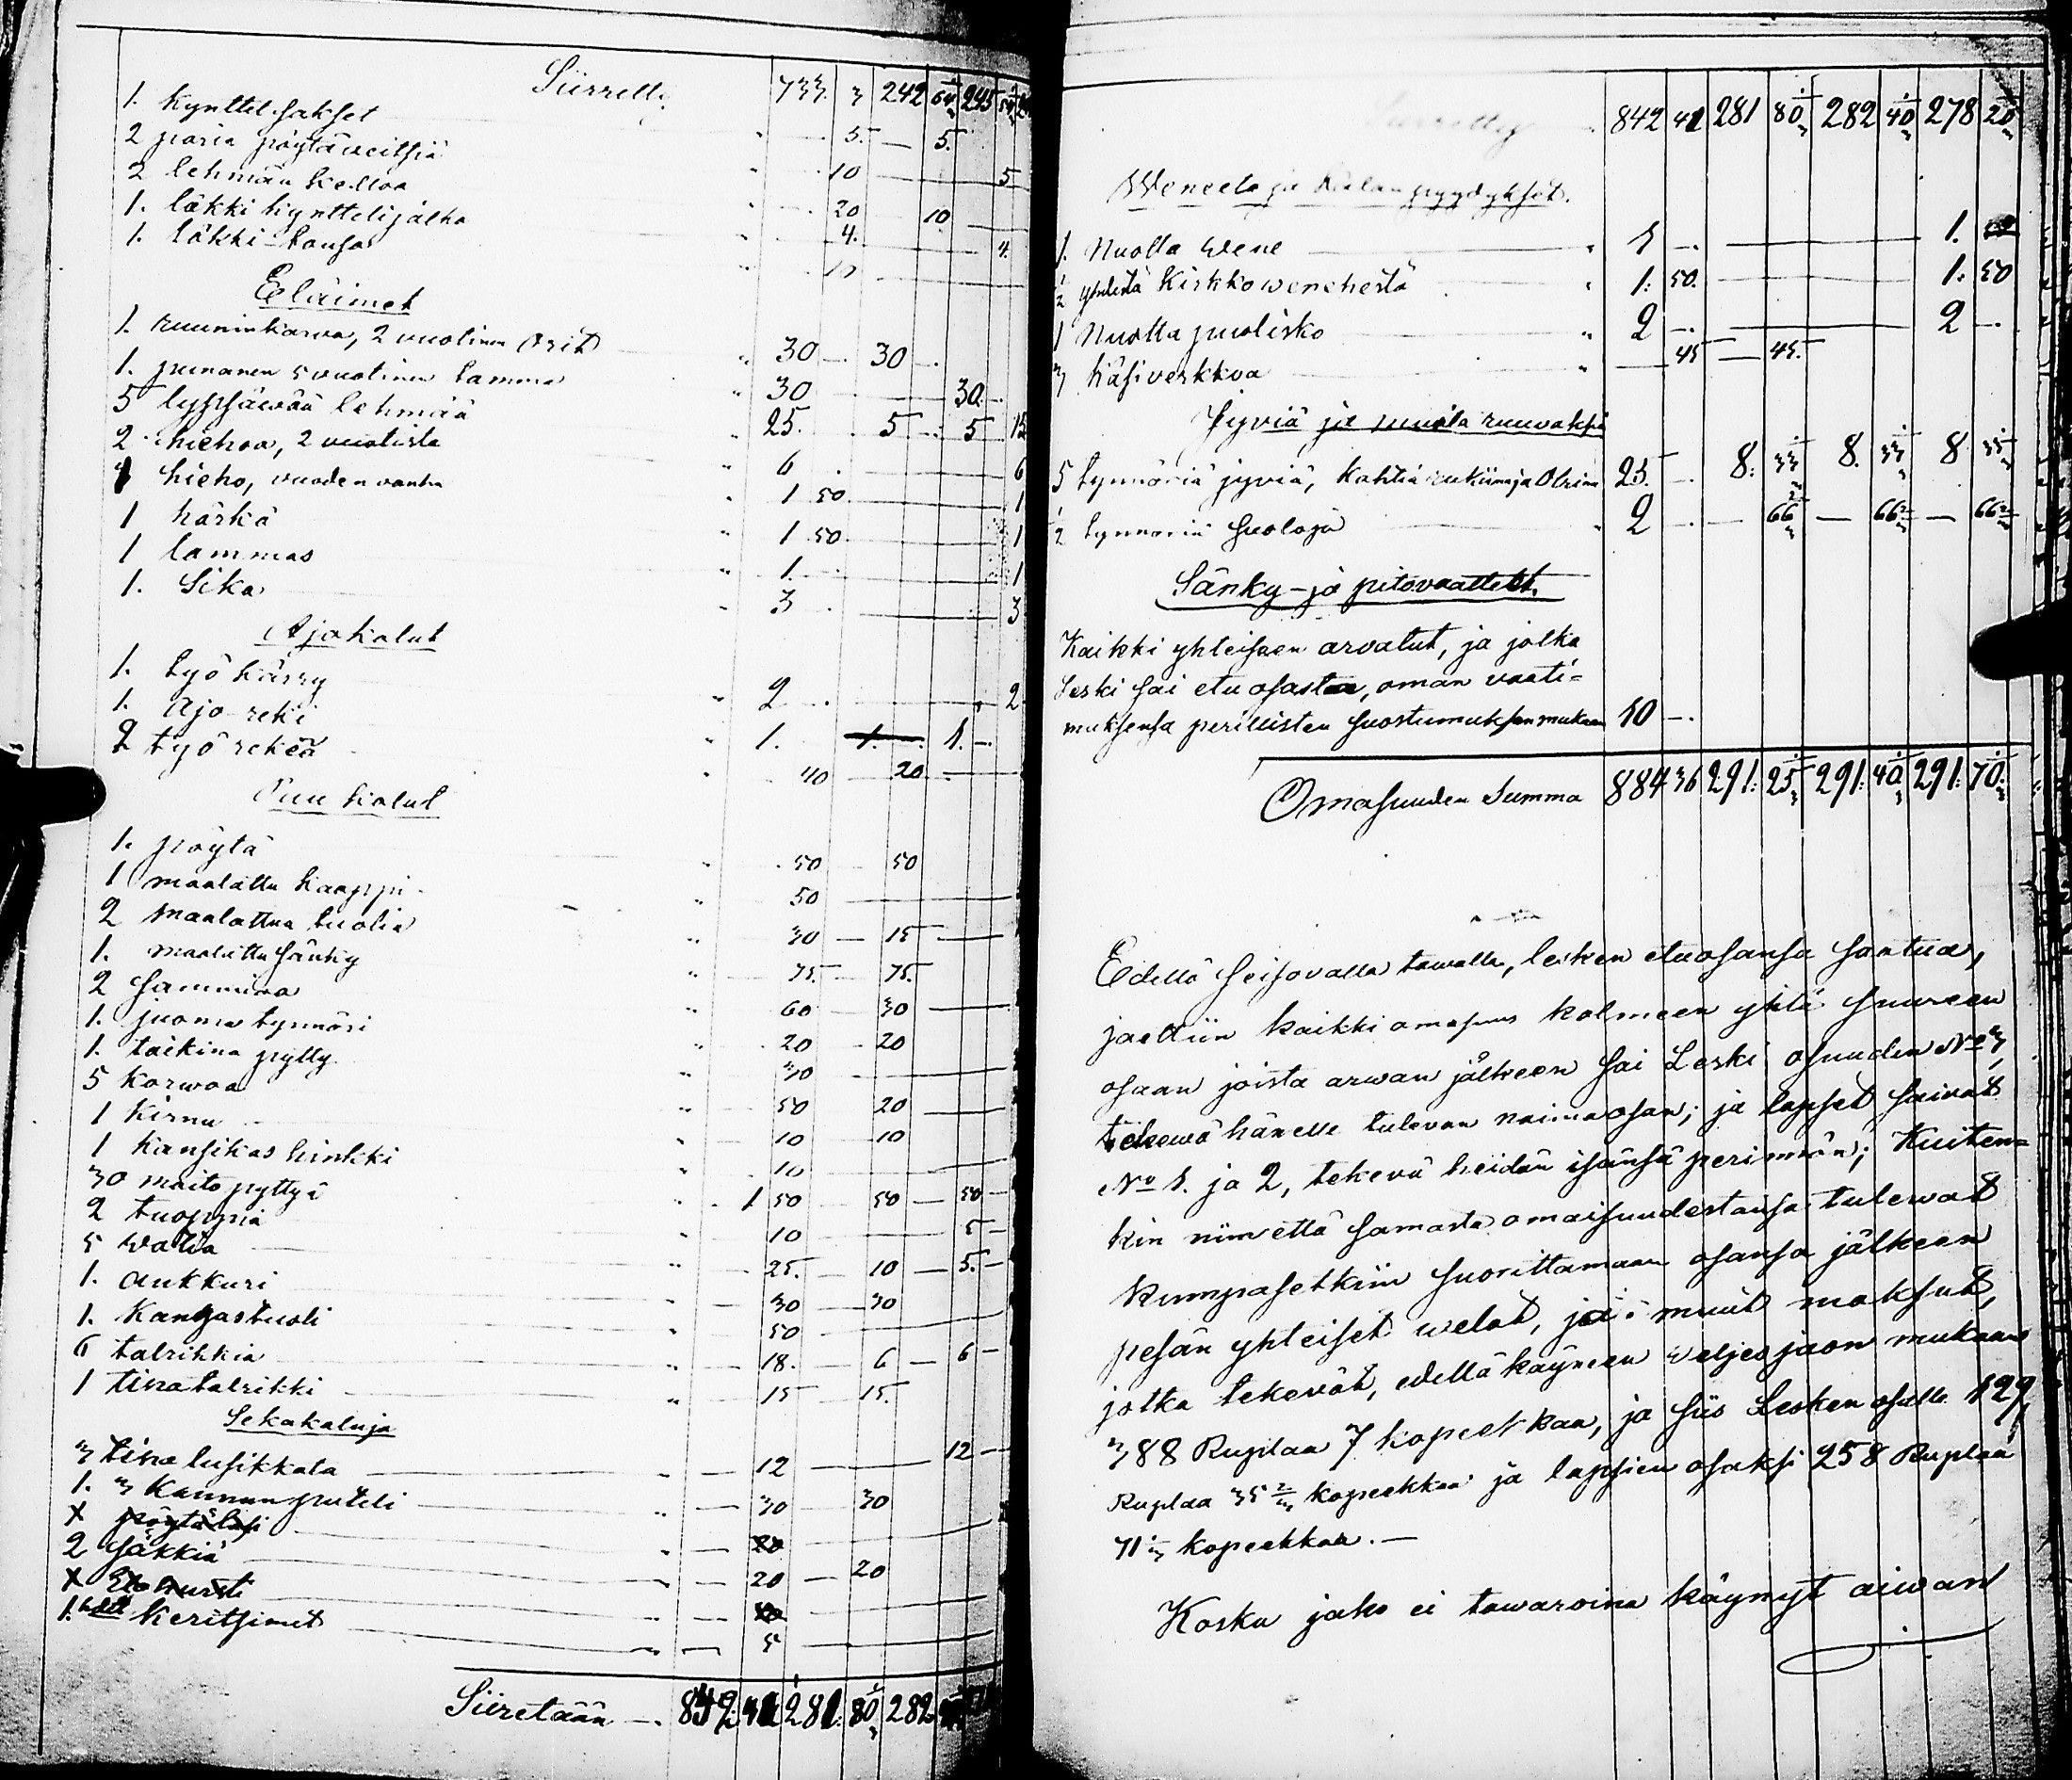 Siirretty 733. 3 242 64 245
1. Kynttel sakset 5. — 5.
2 paria pöytäveitsiä 10 — 5
2 lehmän kelloa 20 10
1. läkki kynttelijalka 4. — 4.
1. läkki-kansa 10 —
Eläimet
1. ruuninkarva, 2 vuotinen Orit 30 — 30 —
1. punanen 5 vuotinen tamma 30 — 30 —
5 lypsäwää lehmää 25. 5 — 5 15
2 hiehoa, 2 vuotista 6 — 6
1 hieho, vuoden vanha 1 50. — 1
1 härkä 1 50 — 1
1 lammas 1. — 1
1. Sika 3 — 3
Ajokalut
1. työ kärry 2 — 2
1. Ajo-reki 1. 1. — 1. —
2 työ rekeä 40 — 20 —
Puu kalut
1. pöytä 50 50
1 maalattu kaappi 50 —
2 maalattua tuolia 30 — 15 —
1. maalattu sänky 75. — 75.
2 sammioa 60 30 —
1. juoma tynnöri 20 — 20
1. taikina pytty 30 —
5 korwoa 50 20 —
1 Kirnu 10 10
1 Kansikas kinkki 10 —
30 maito pyttyä 1 50 — 50 — 50 —
2 tuoppia 10 — 5 —
5 watia 25. — 10 — 5. —
1. aukkuri 30 — 30
1. Kangastuoli 50 —
6 talrikkia 18. — 6 — 6 —
1 tina talrikki 15 15.
Sekakaluja
3 tina lusikkata — 12 — 12 —
1. 3 Kannun puteli — 30 — 30
X pöytä lasi 20
2 säkkiä — 20 — 20
X
1. keritsimet — 5 —
Siiretään — 842 42 281. 80 282
842 42 281 80 282 40 278 20
Weneetä ja Kalan pyydykset.
1. Nuotta wene — 1 — 1.
½ yhdestä Kirkkowenehestä 1. 50. — 1. 50
1 Nuotta puolisko — 2 — 2 —
3 käsiverkkoa — 45 — 45.
Jyviä ja muita ruuvaksia
5 tynnöriä jyviä, kahtia rukiina ja Olrina 25. — 8. 33 8. 33 8 33
½ tynnöriä suoloja 2 — 66 — 66 — 66
Sänky- ja pitovaatteet.
Kaikki yhteiseen arvatut, ja jotka
Leski sai etuosasta, oman vaati=
muksensa perillisten suostumuksen mukaan 10 —
Omasuuden Summa 884 36 291: 25 291: 40 291: 70.
Edellä seisovalla tawalla, lesken etuosansa saatua,
jaettiin kaikki omasuus kolmeen yhtä suureen
osaan joista arwan jälkeen sai Leski osuuden No 3,
tekewä hänelle tulevan naimaosan; ja lapset saivat
No 1. ja 2, tekevä heidän isänsä perimön; Kuiten=
kin niin että samasta omaisuudestansa tulewat
kumpasetkiin suorittamaan osansa jälkeen
pesän yhteiset welat, ja muut maksut,
jotka tekevät, edellä käyneen weljes jaon mukaan
388 Ruplaa 7 kopeekkaa, ja siis Lesken osalle 129,
Ruplaa 35 ⅔ kopeekkaa ja lapsien osaksi 258 Ruplaa
71 ⅓ kopeekkaa. —
Koska jako ei tawaroina käynyt aiwan